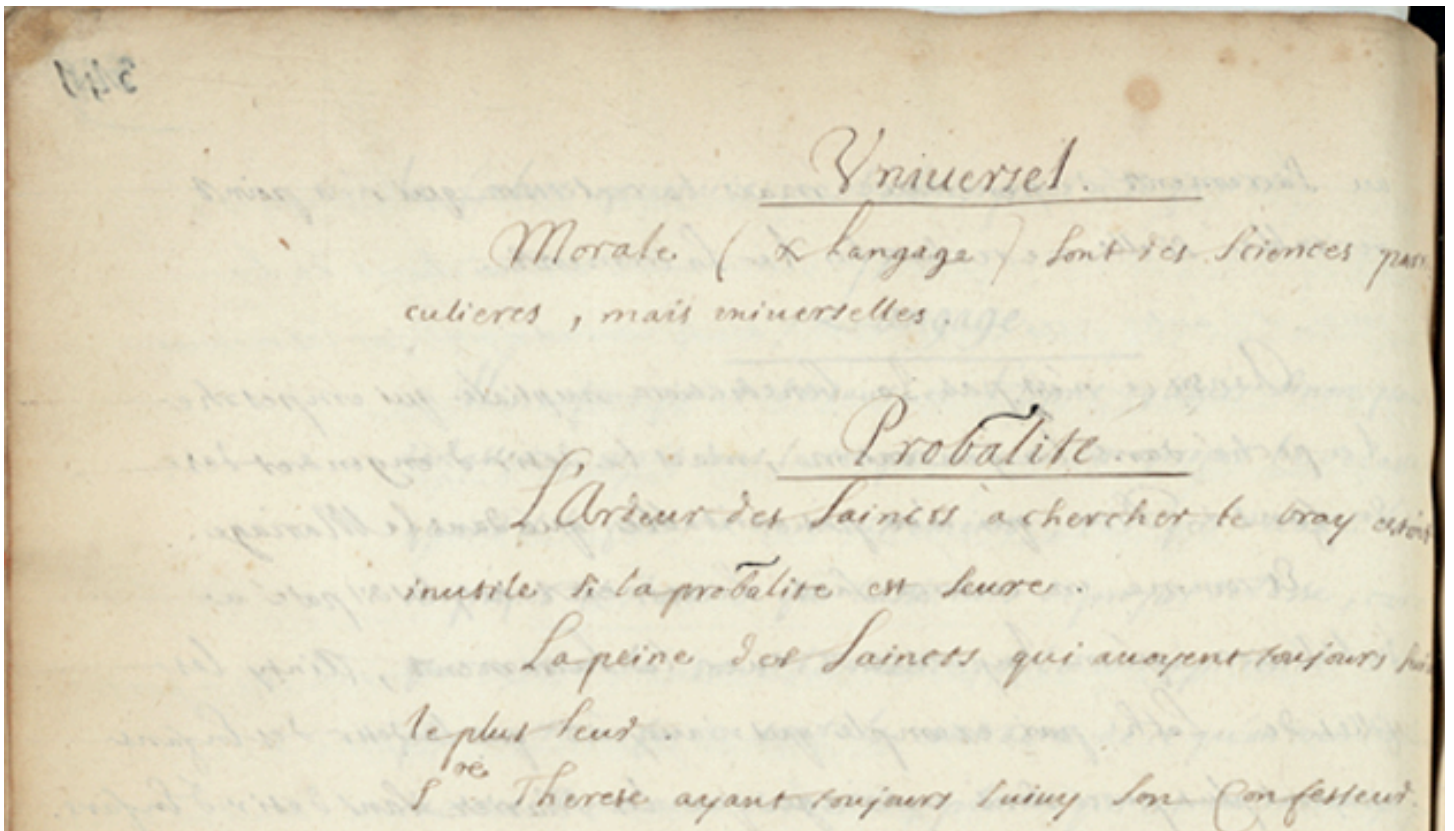 Vniuersel.
Morale ( & Langage ) sont des Sciences par
culieres, mais vniuerselles.
Probalité
L'Ardeur des Saincts à chercher le vray estoit
inutile si la probalité est seure.
La peine des Saincts qui auoyent toujours
le plus seur.
Ste Therese ayant toujours suiuy son Confesseur.